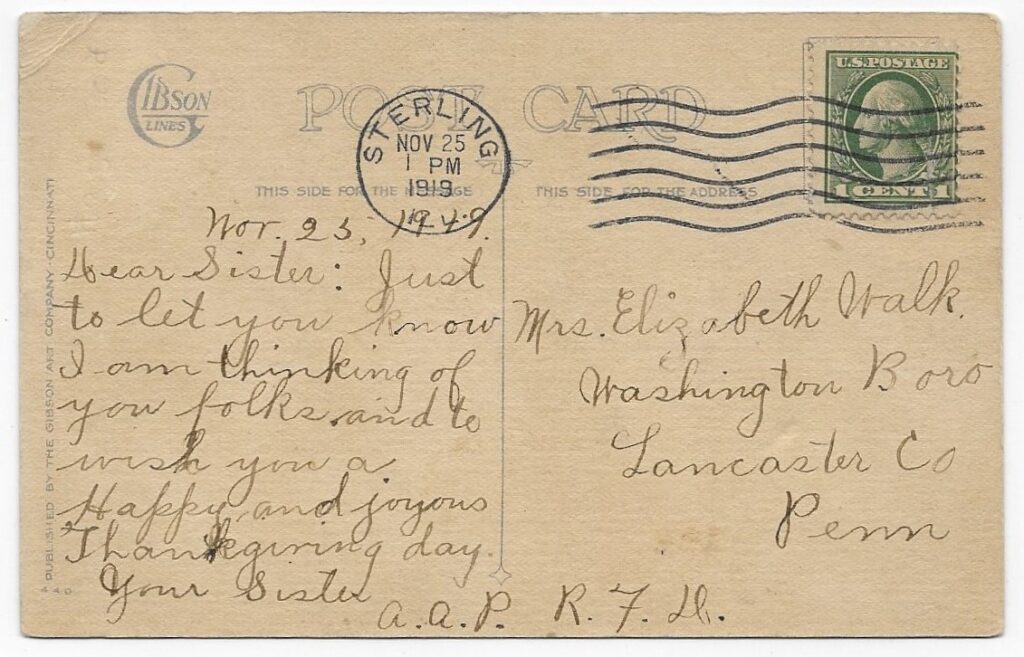 GIBSON
LINES
POST CARD
THIS SIDE FOR THE MESSAGE
THIS SIDE FOR THE ADDRESS
STERLING
NOV 25
1 PM
1919
U.S. POSTAGE
1 CENT 1
PUBLISHED BY THE GIBSON ART COMPANY · CINCINNATI
Nov. 25, 1919.
Dear Sister: Just
to let you know
I am thinking of
you folks and to
wish you a
Happy and joyous
Thankgiving day.
Your Sister
A. A. P. R. F. D.
Mrs. Elizabeth Walk.
Washington Boro
Lancaster Co
Penn